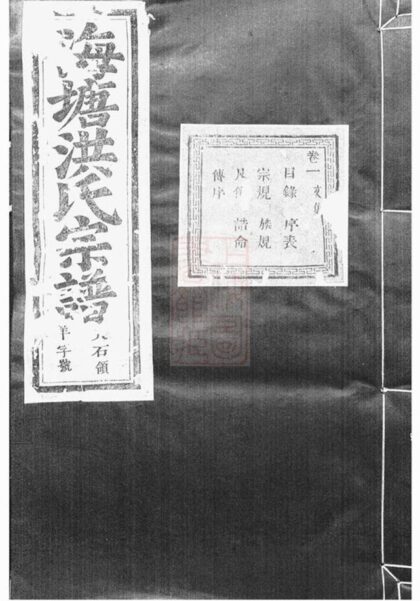 海塘洪氏宗譜
石領
羊字號
卷一
目錄 序表
宗規 族規
凡例 誥命
傳序